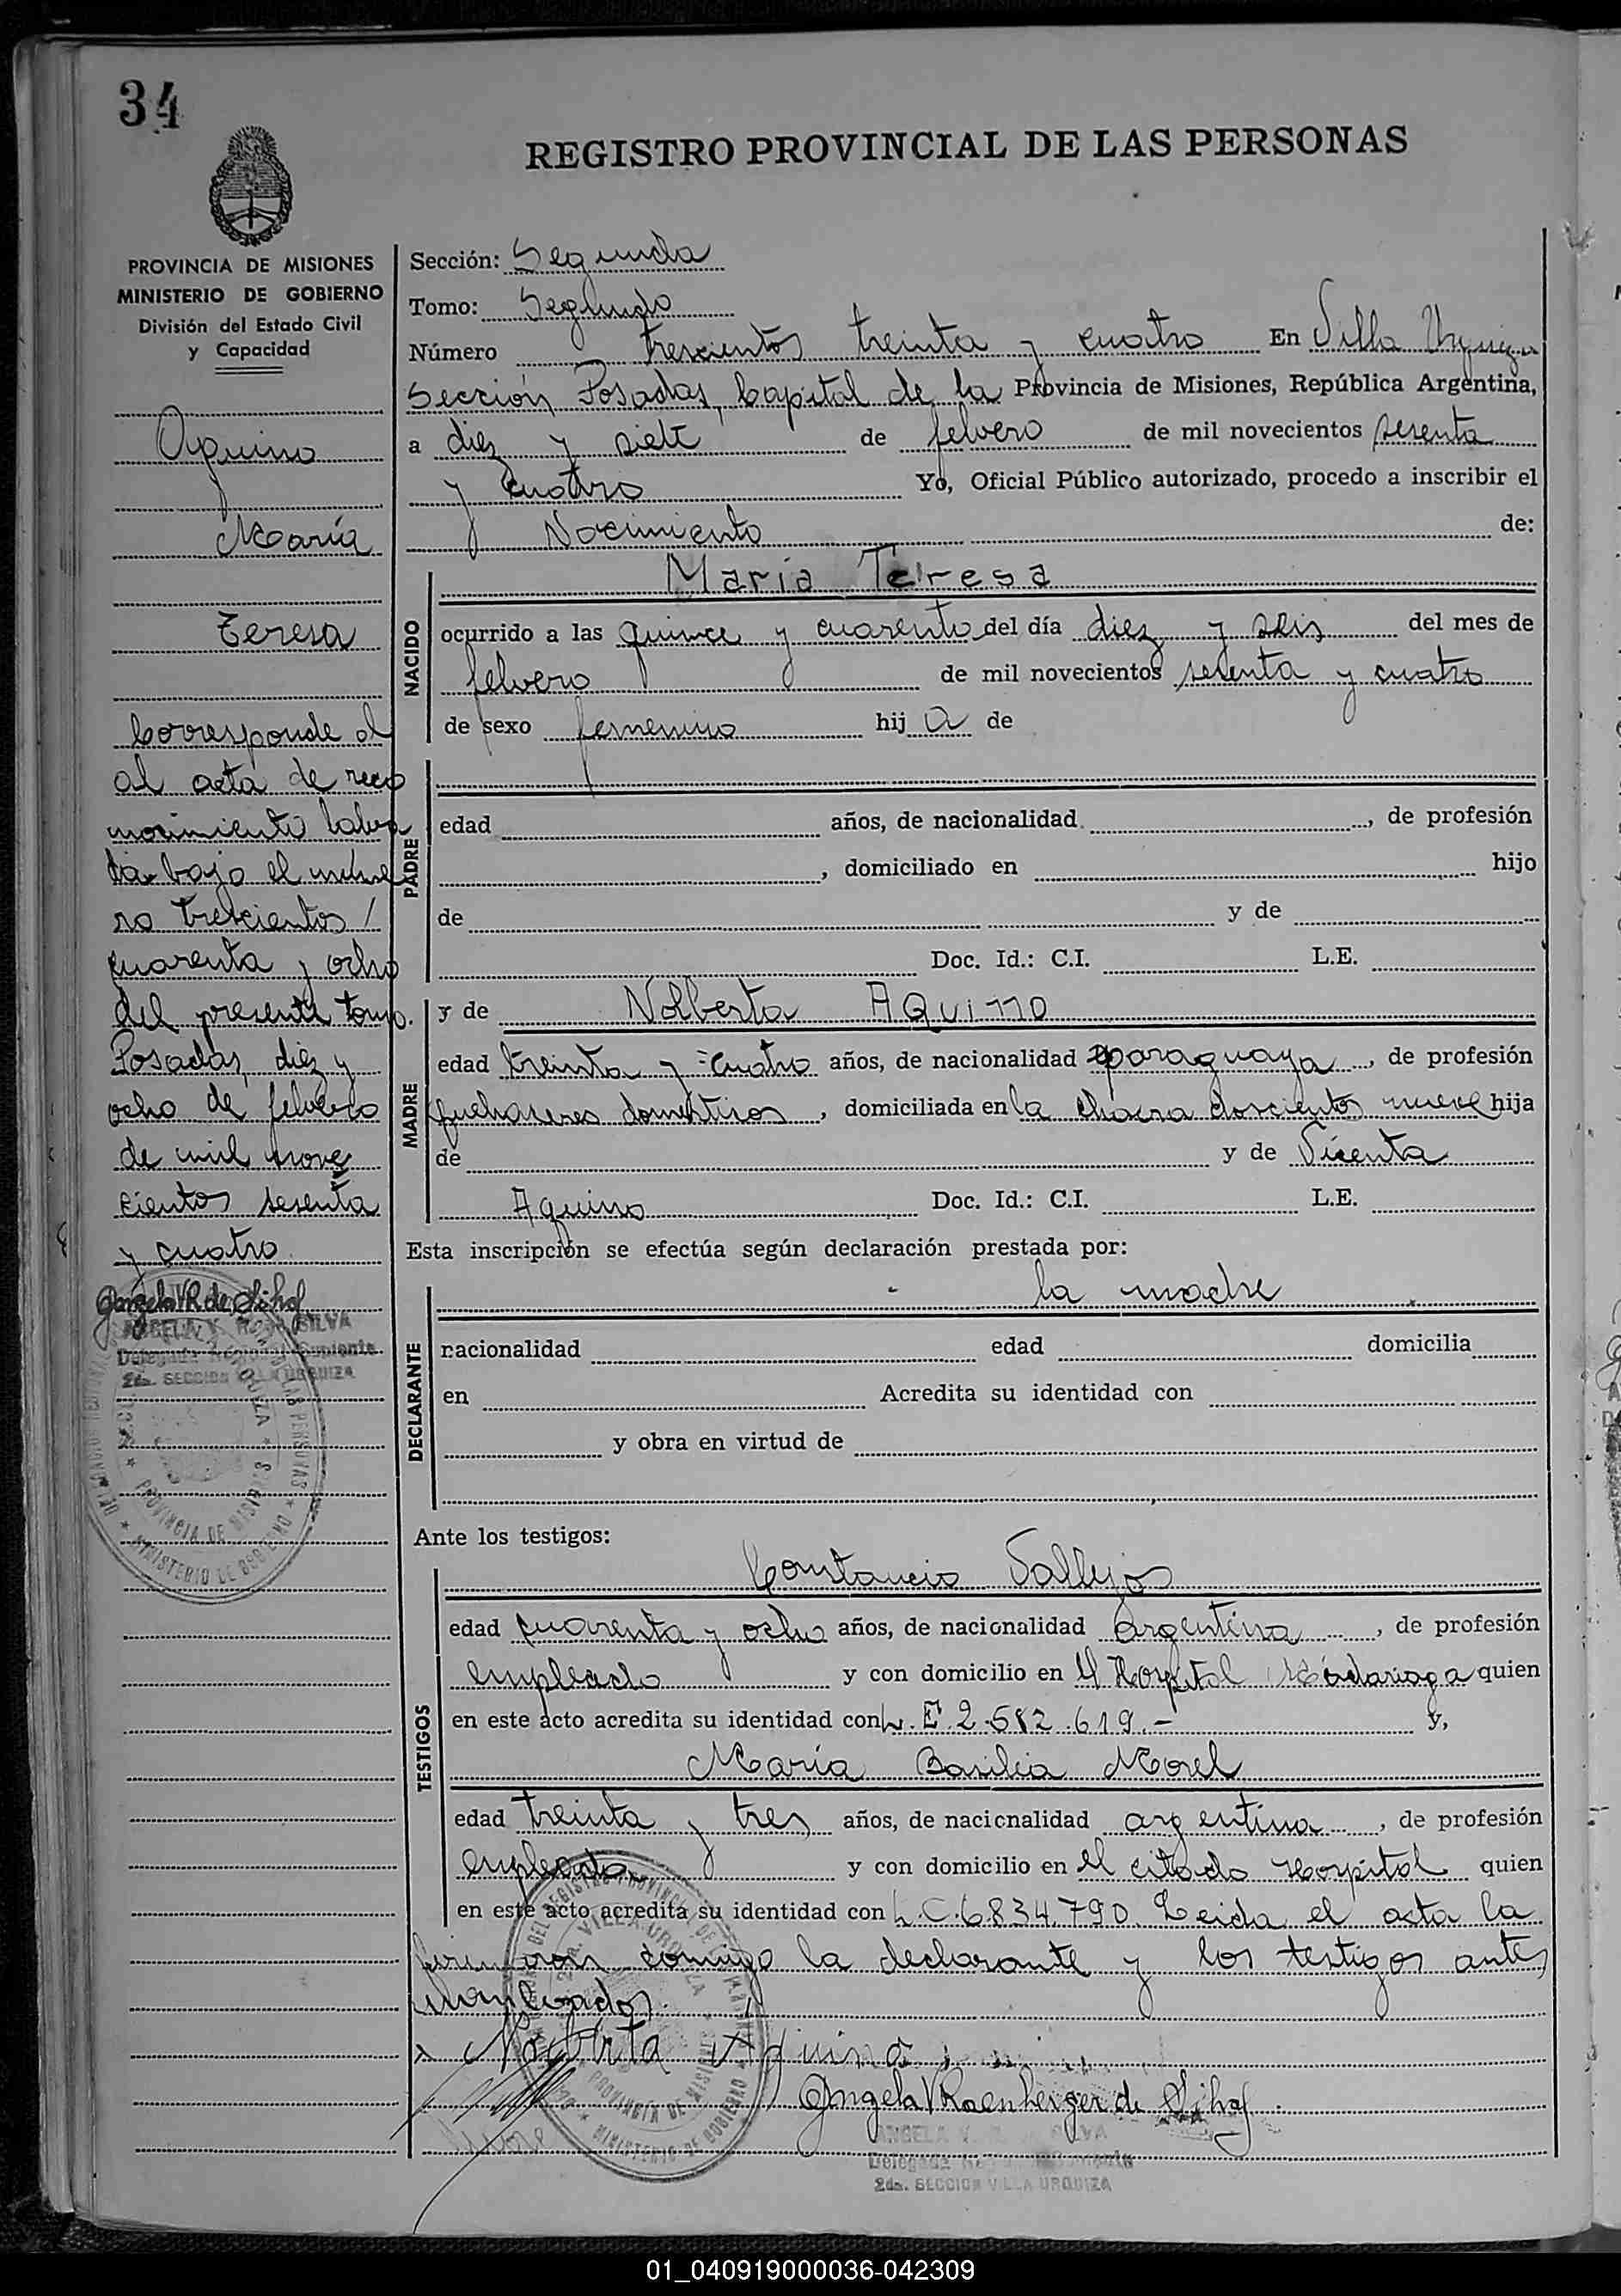 34
REGISTRO PROVINCIAL DE LAS PERSONAS
PROVINCIA DE MISIONES
MINISTERIO DE GOBIERNO
División del Estado Civil
y Capacidad
Aquino
María
Teresa
Corresponde al
al acta de reco
nocimiento labra
da bajo el núme
ro trescientos /
cuarenta y ocho
del presente tomo.
Posadas, diez y
ocho de febrero
de mil nove
cientos sesenta
y cuatro
Angela VR de Silva
ANGELA V. R. de SILVA
Delegada Regional Suplente
2da. SECCION VILLA URQUIZA
PROVINCIA DE MISIONES
MINISTERIO DE GOBIERNO
Sección: Segunda
Tomo: Segundo
Número trescientos treinta y cuatro En Villa Urquiza
Sección Posadas, Capital de la Provincia de Misiones, República Argentina,
a diez y siete de febrero de mil novecientos sesenta
y cuatro Yo, Oficial Público autorizado, procedo a inscribir el
Nacimiento de:
NACIDO
María Teresa
ocurrido a las quince y cuarenta del día diez y seis del mes de
febrero de mil novecientos sesenta y cuatro
de sexo femenino hij a de
PADRE
edad años, de nacionalidad , de profesión
, domiciliado en hijo
de y de
Doc. Id.: C.I. L.E.
MADRE
y de Nolberta AQUINO
edad treinta y cuatro años, de nacionalidad paraguaya , de profesión
quehaceres domésticos , domiciliada en la chacra doscientos nueve hija
de y de Vicenta
Aquino Doc. Id.: C.I. L.E.
Esta inscripción se efectúa según declaración prestada por:
DECLARANTE
la madre
nacionalidad edad domicilia
en Acredita su identidad con
y obra en virtud de
Ante los testigos:
TESTIGOS
Constancio Vallejos
edad cuarenta y ocho años, de nacionalidad argentina , de profesión
empleado y con domicilio en el Hospital Madariaga quien
en este acto acredita su identidad con L.E. 2.582.619.- y,
María Basilia Morel
edad treinta y tres años, de nacionalidad argentina , de profesión
empleada y con domicilio en el citado Hospital quien
en este acto acredita su identidad con L.C. 6.834.790. Leida el acta la
firmaron conmigo la declarante y los testigos antes
nombrados.
Nolberta Aquino
2da. SECCION VILLA URQUIZA
01_040919000036-042309